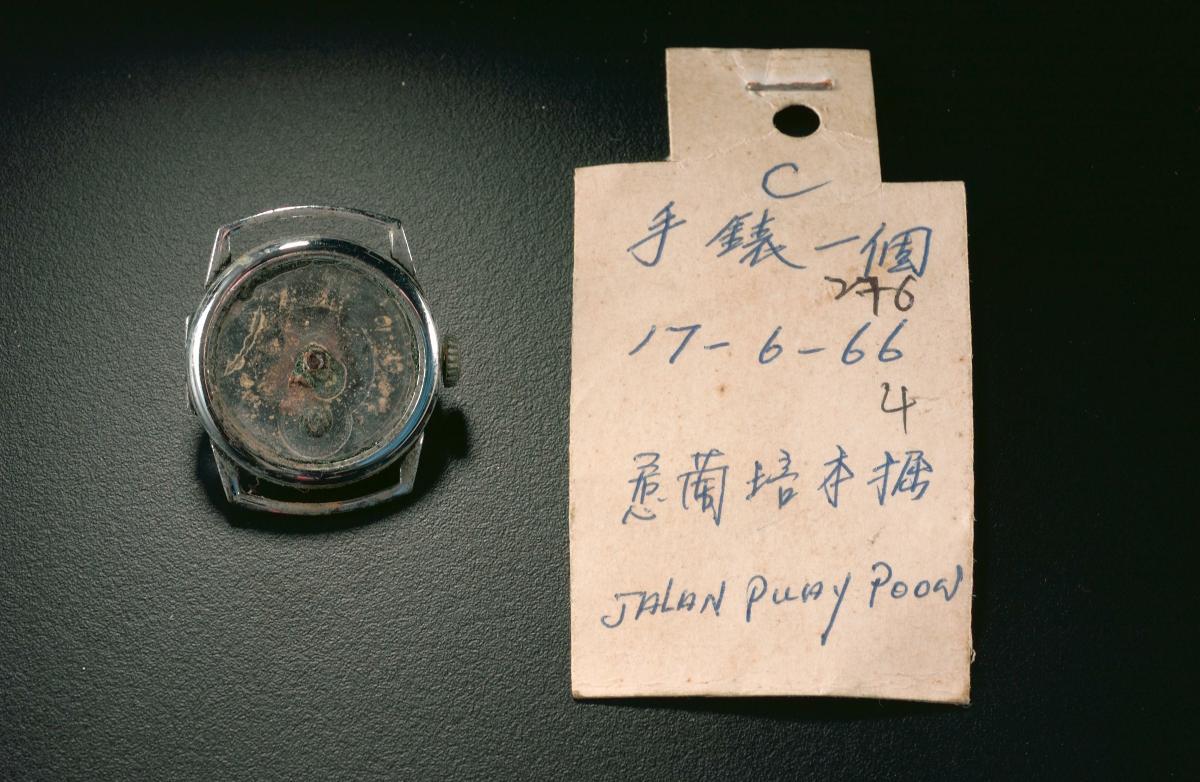 C
手錶一個
276
17-6-66
4
惹蘭培本掘
JALAN PUAY POON